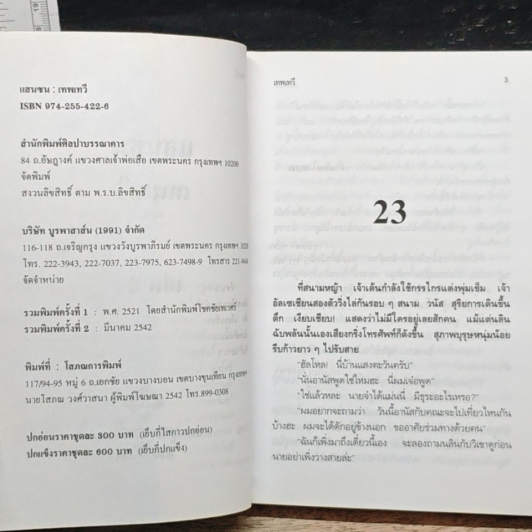 แสนซน : เทพเทวี
ISBN 974-255-422-6
สำนักพิมพ์ศิลปาบรรณาคาร
84 ถ.อัษฎางค์ แขวงศาลเจ้าพ่อเสือ เขตพระนคร กรุงเทพฯ 10200
จัดพิมพ์
สงวนลิขสิทธิ์ ตาม พ.ร.บ.ลิขสิทธิ์
บริษัท บูรพาสาส์น (1991) จำกัด
116-118 ถ.เจริญกรุง แขวงวังบูรพาภิรมย์ เขตพระนคร กรุงเทพฯ
โทร. 222-3943, 222-7037, 223-7975, 623-7498-9 โทรสาร
จัดจำหน่าย
รวมพิมพ์ครั้งที่ 1 : พ.ศ. 2521 โดยสำนักพิมพ์โชคชัยเทเวศร์
รวมพิมพ์ครั้งที่ 2 : มีนาคม 2542
พิมพ์ที่ : โสภณการพิมพ์
117/94-95 หมู่ 6 ถ.เอกชัย แขวงบางบอน เขตบางขุนเทียน กรุงเทพฯ
นายโสภณ วงศ์วาสนา ผู้พิมพ์โฆษณา 2542 โทร.899-0308
ปกอ่อนราคาชุดละ 300 บาท (เย็บกี่ไสกาวปกอ่อน)
ปกแข็งราคาชุดละ 600 บาท (เย็บกี่ปกแข็ง)
เทพเทวี 3
23
ที่สนามหญ้า เจ้าเด่นกำลังใช้กรรไกรแต่งพุ่มเข็ม เจ้า
อัลเซเชียนสองตัววิ่งไล่กันรอบ ๆ สนาม วนัส สุริยการเดินขึ้น
ตึก เงียบเชียบ! แสดงว่าไม่มีใครอยู่เลยสักคน แม้แต่นลิน
ฉับพลันนั้นเองเสียงกริ่งโทรศัพท์ก็ดังขึ้น สุภาพบุรุษหนุ่มน้อย
รีบก้าวยาว ๆ ไปรับสาย
“ฮัลโหล! นี่บ้านแสงตะวันครับ”
“นั่นอานัสพูดใช่ไหมฮะ นี่ผมเจ๋อพูด”
“ใช่แล้วหละ นายจำได้แม่นนี่ มีธุระอะไรเหรอ?”
“ผมอยากจะถามว่า วันนี้อานัสกับคณะจะไปเที่ยวไหนกัน
บ้างฮะ ผมจะได้ดักอยู่ข้างนอก ขออาศัยร่วมทางด้วยคน”
“ฉันก็เพิ่งมาถึงเดี๋ยวนี้เอง จะลองถามนลินกับวิเชาดูก่อน
นายอย่าเพิ่งวางสายล่ะ”